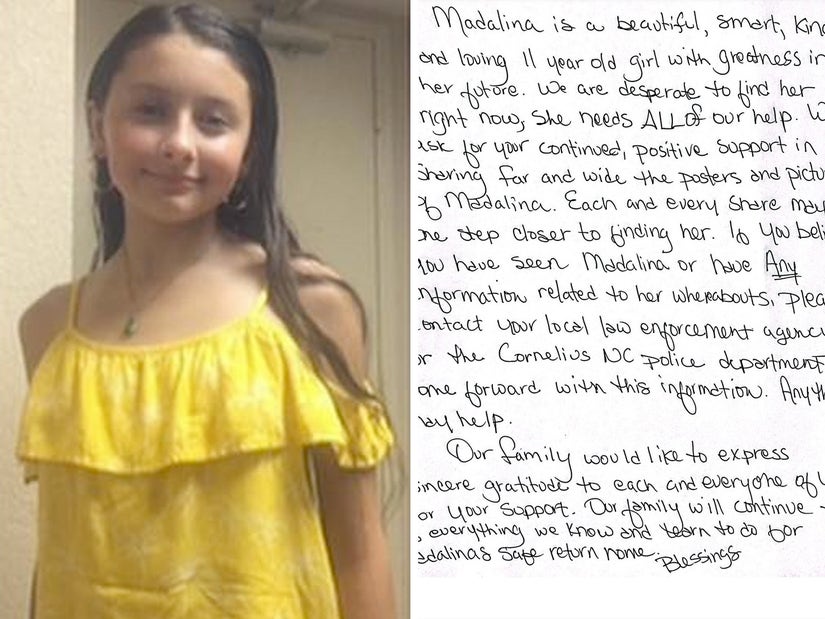 Madalina is a beautiful, smart, Kind
and loving 11 year old girl with greatness in
her future. We are desperate to find her
right now, She needs ALL of our help. W
ask for your continued, positive support in
sharing far and wide the posters and pictu
of Madalina. Each and every share may
one step closer to finding her. If you beli
you have seen Madalina or have Any
nformation related to her whereabouts, plea
ontact your local law enforcement agency
or the Cornelius NC police department
ome forward with this information. Anyth
ay help.
Our family would like to express
incere gratitude to each and everyone of
or your support. Our family will continue
everything we know and learn to do for
adalinas safe return home. Blessings